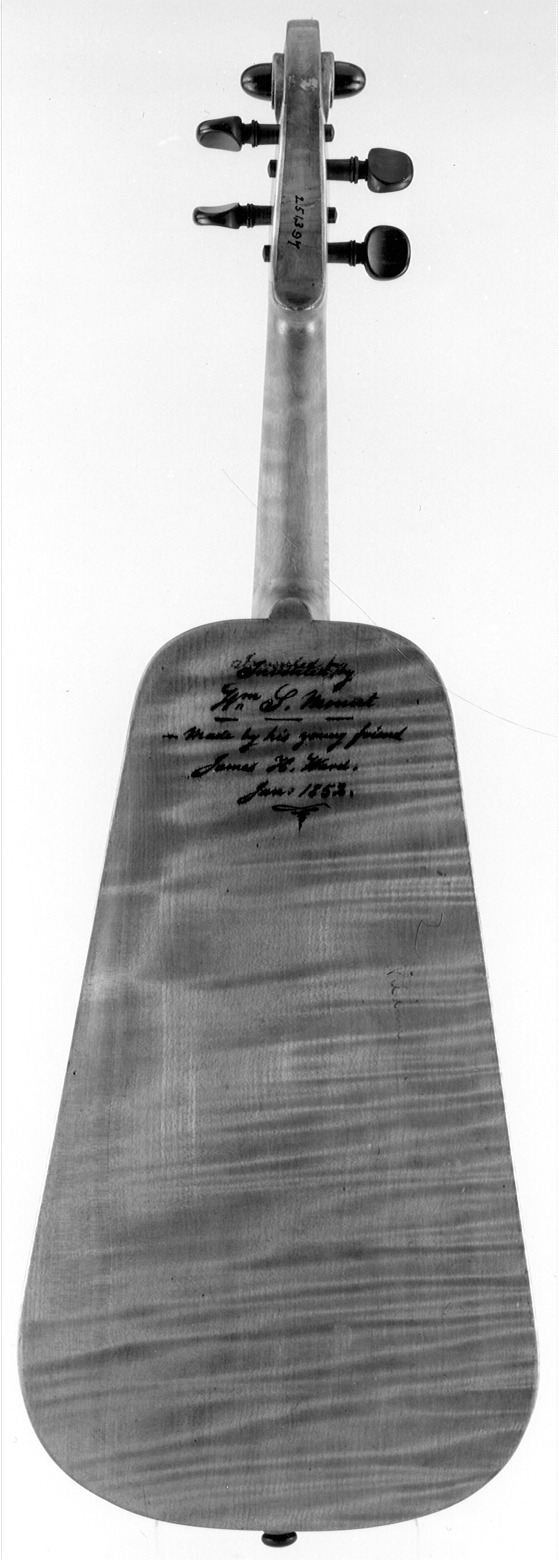 256397
Invented by
Wm S. Mount
- Made by his young friend
James H. Ward.
June 1852.